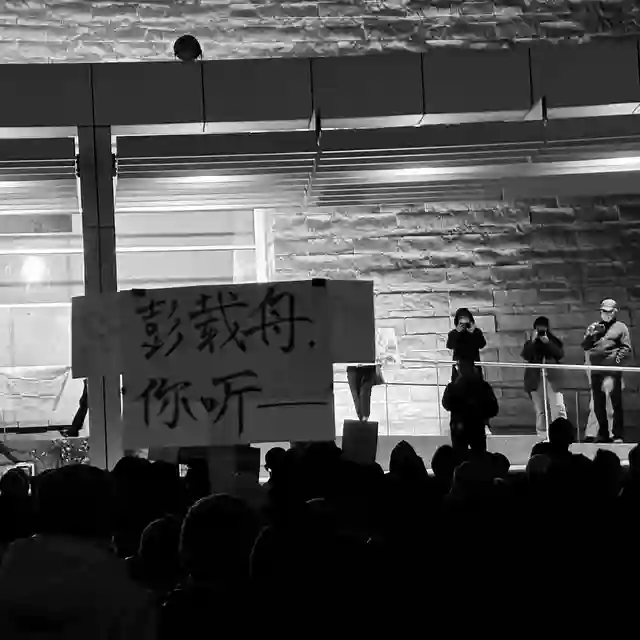 彭载舟.
你听——